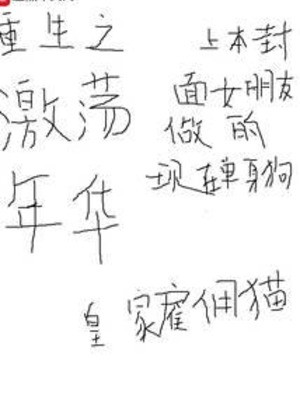 重生之
激荡
年华
上本封
面女朋友
做的
现在单身狗
皇家雇佣猫